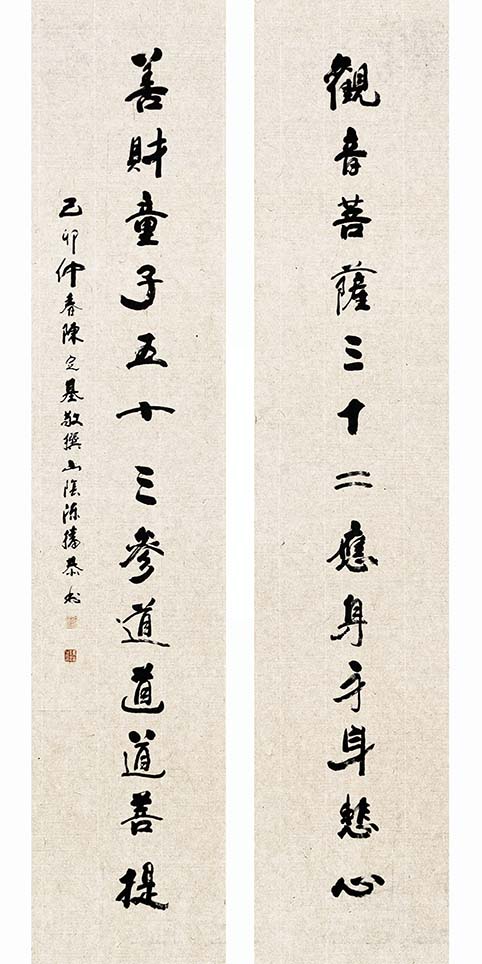 觀音菩薩三十二應身身身悲心
善財童子五十三參道道道菩提
己卯仲春陳定基敬撰山陰